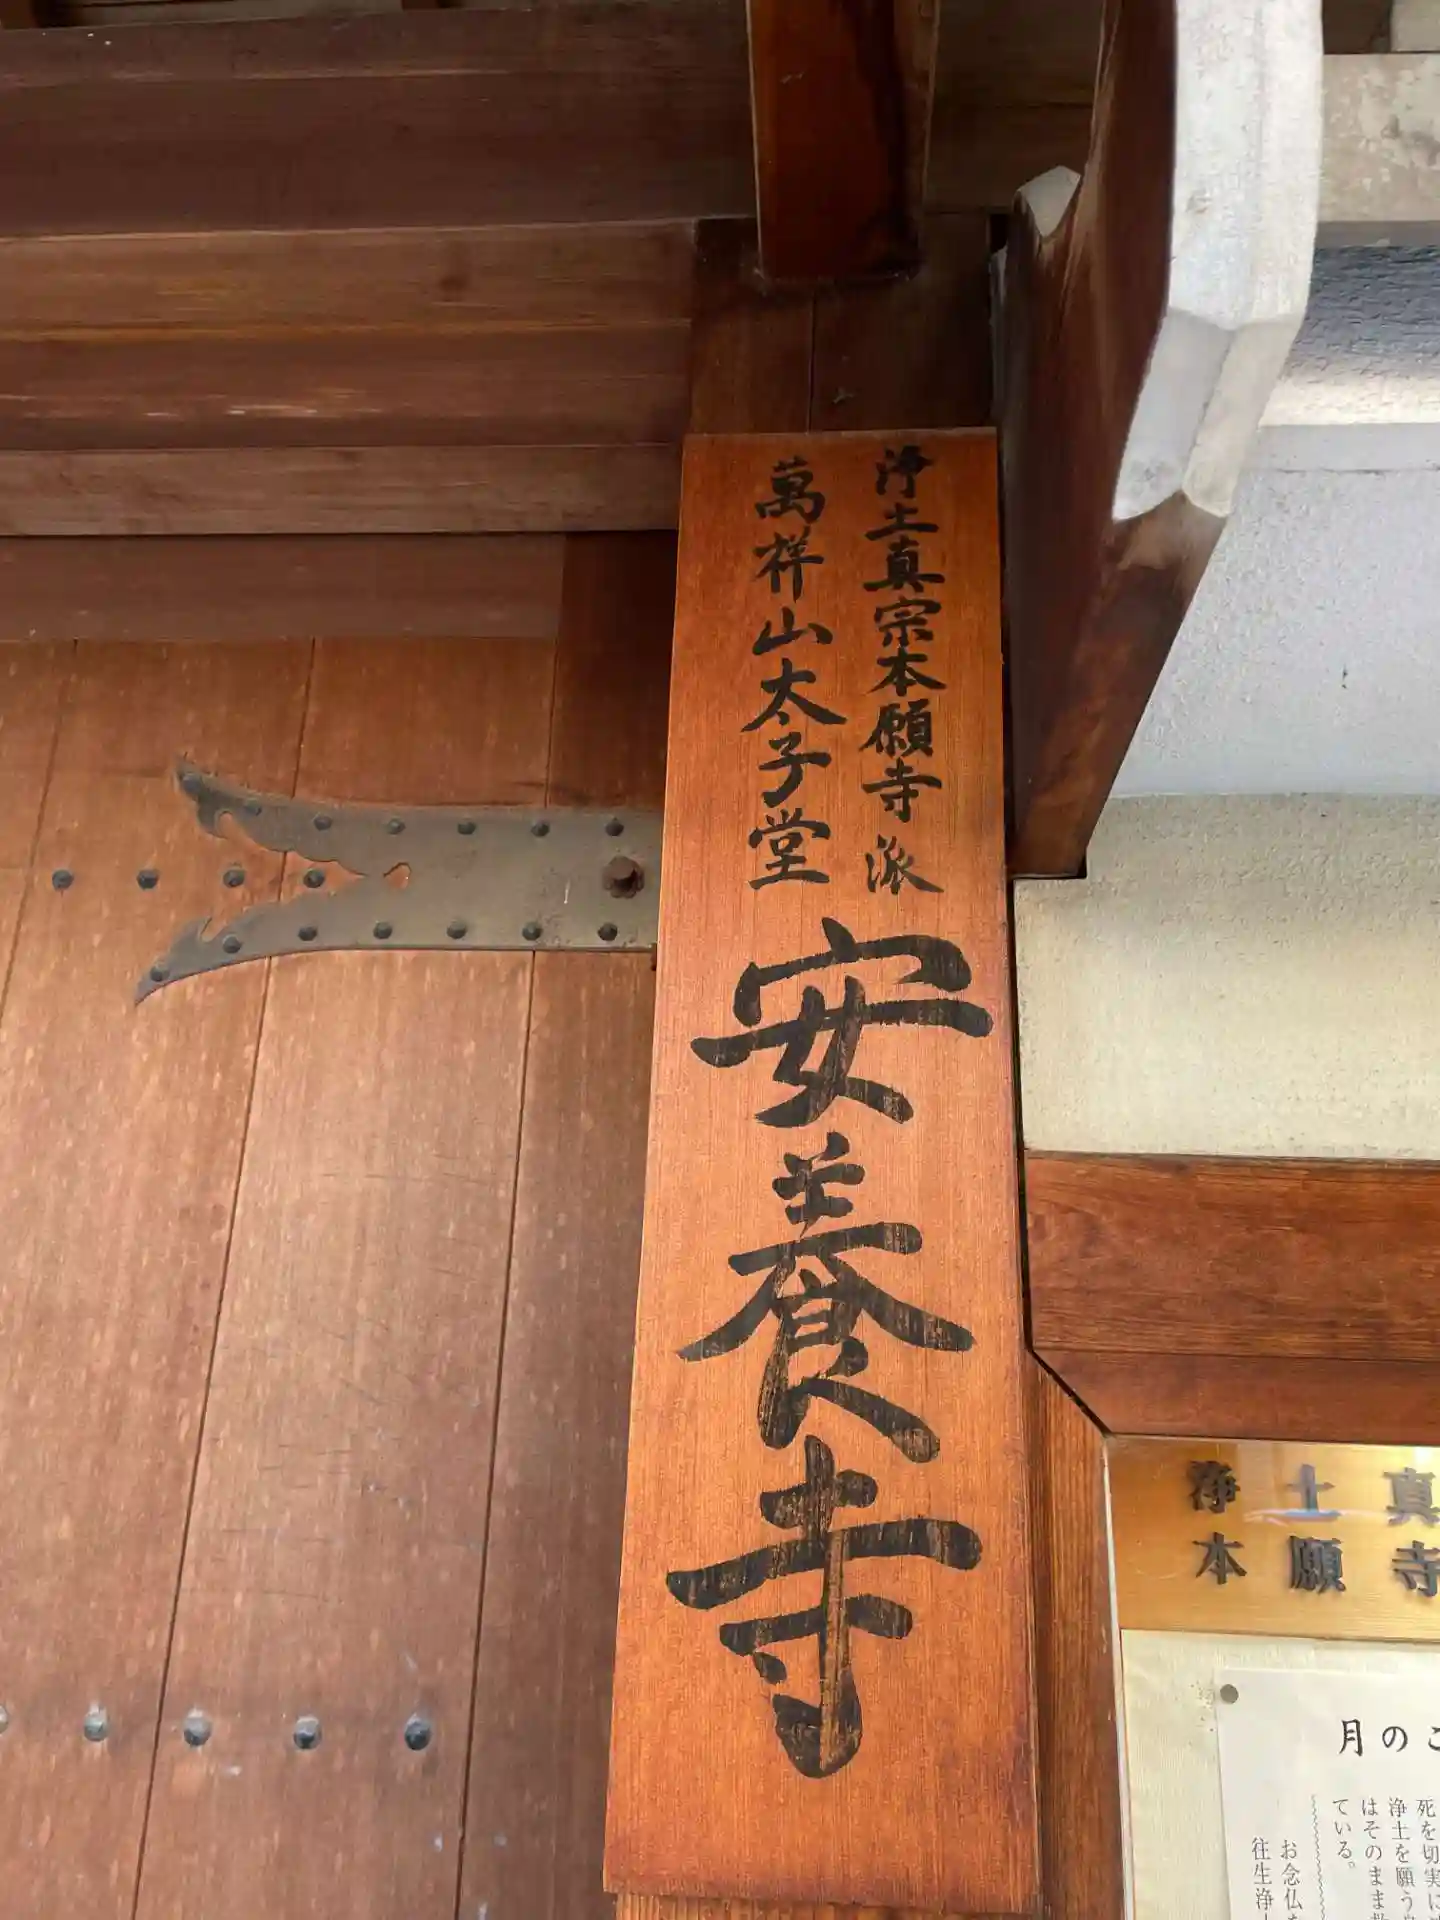 浄土真宗本願寺派
萬祥山太子堂
安養寺
浄土真
本願寺
月のこ
死を切実に
浄土を願う
はそのまま
ている。
お念仏
往生浄